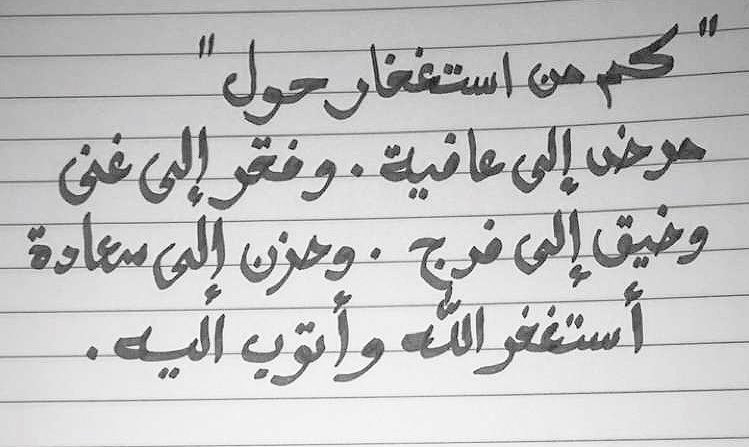 "كم من استغفار حول"
مرض إلى عافية . وفقر إلى غنى
وضيق إلى فرج . وحزن إلى سعادة
أستغفر الله وأتوب إليه .